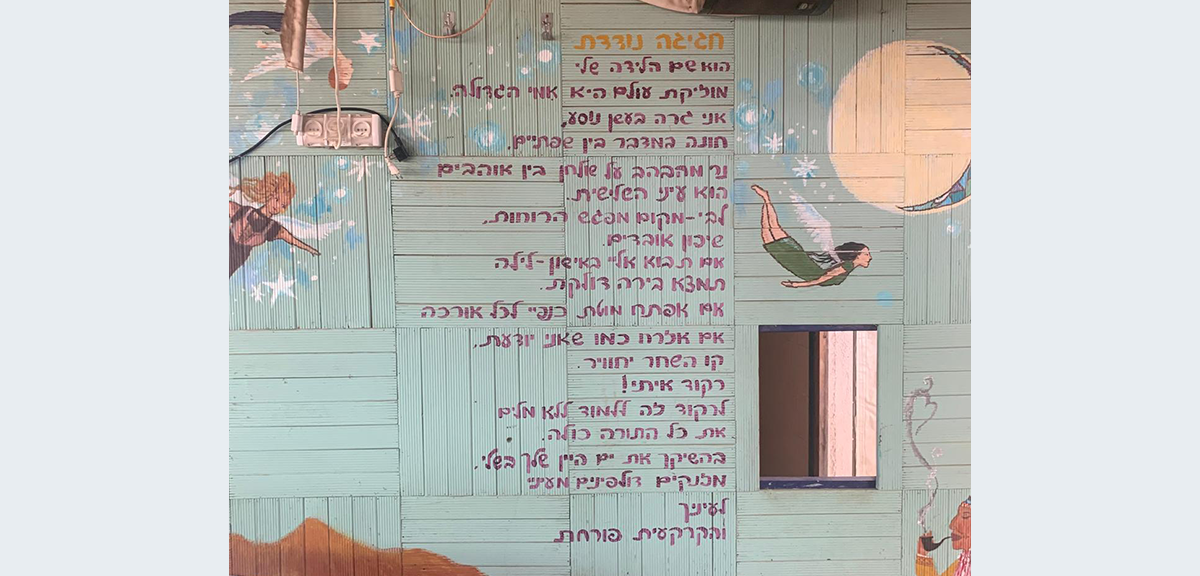 חגיגה נודדת
הוא שם הלידה שלי
מוזיקת עולם היא אמי הגדולה.
אני גרה בעשן נוסע,
חונה במדבר בין שפתיים.
נר מהבהב על שולחן בין אוהבים
הוא עיני השלישית.
לבי-מקום מפגש הרוחות,
שיכון אובדים.
אם תבוא אליי באישון-לילה
תמצא בירה דולקת.
אם אפתח מוטת כנפיי לכל אורכה
אם אזרח כמו שאני יודעת,
קו השחר יחוויר.
רקוד איתי!
לרקוד זה ללמוד ללא מלים
את כל התורה כולה.
בהשיקך את ים היין שלך בשלי.
מזנקים דולפינים מעיני
לעיניך
והקרקעית פורחת.